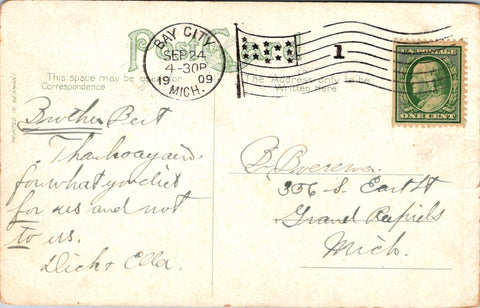 Post Card
BAY CITY
SEP 24
4-30P
1909
MICH.
1
U.S. POSTAGE
ONE CENT
This space may be used for
Correspondence
The Address only to be
Written here
PRINTED IN GERMANY
Brother Bert
Thanks again.
for what you did
for us and not
to us.
Dick & Ella.
B.
306-S. East St
Grand Rapids
Mich.